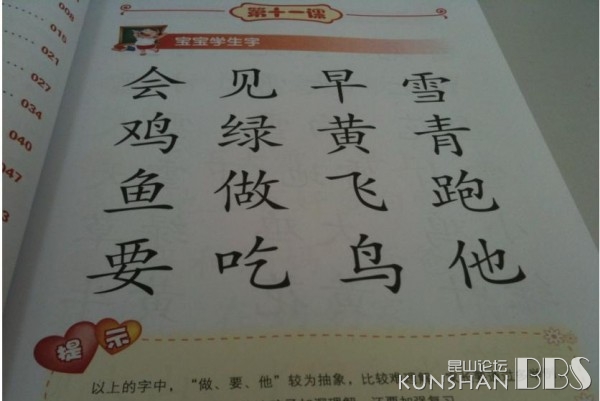 008
015
021
027
034
040
047
第十一课
宝宝学生字
会 见 早 雪
鸡 绿 黄 青
鱼 做 飞 跑
要 吃 鸟 他
提示
以上的字中，“做、要、他”较为抽象，比较难
昆山论坛
KUNSHAN BBS